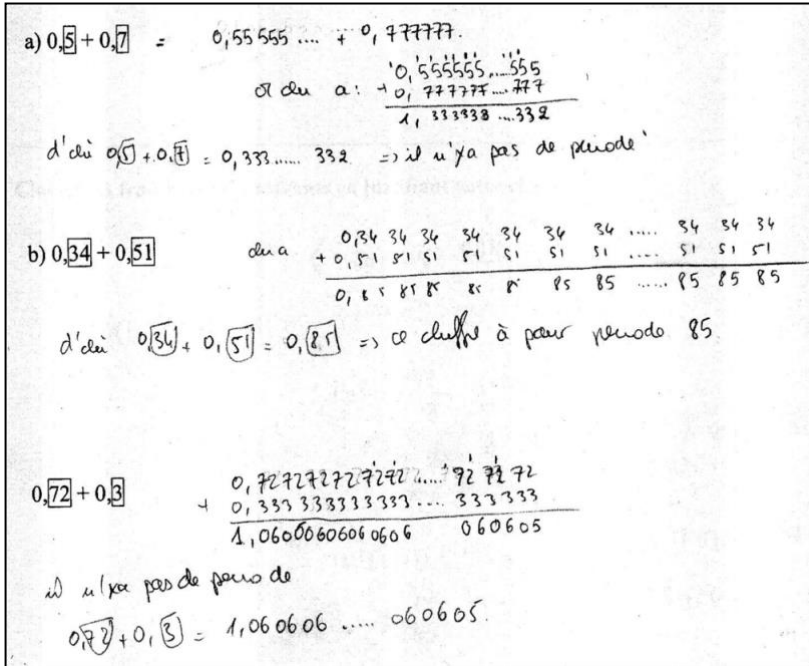 a) 0,5 + 0,7 = 0,55 555 .... + 0, 777777.
'0, 555555....555
on a : + 0, 777777....777
1, 333333 ...332
d'où 0,5 + 0,7 = 0,333...... 332 => il n'ya pas de période
b) 0,34 + 0,51
on a 0,34 34 34 34 34 34 34 ..... 34 34 34
+ 0,51 51 51 51 51 51 51 ..... 51 51 51
0, 85 85 85 85 85 85 85 ...... 85 85 85
d'où 0,34 + 0,51 = 0,85 => ce chiffre à pour periode 85.
0,72 + 0,3
0,727272727272 ..... 72 72 72
+ 0,333 333333333 .... 333 333
1,0606060606 0606 060605
il n'ya pas de periode
0,72 + 0,3 = 1,060606 ..... 060605.